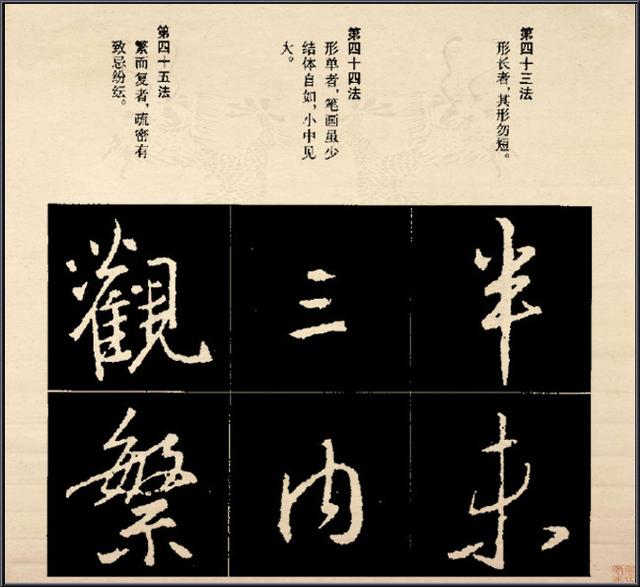 第四十三法
形长者，其形勿短。
第四十四法
形单者，笔画虽少
结体自如，小中见
大。
第四十五法
繁而复者，疏密有
致忌纷纭。
半
未
三
内
觀
繁